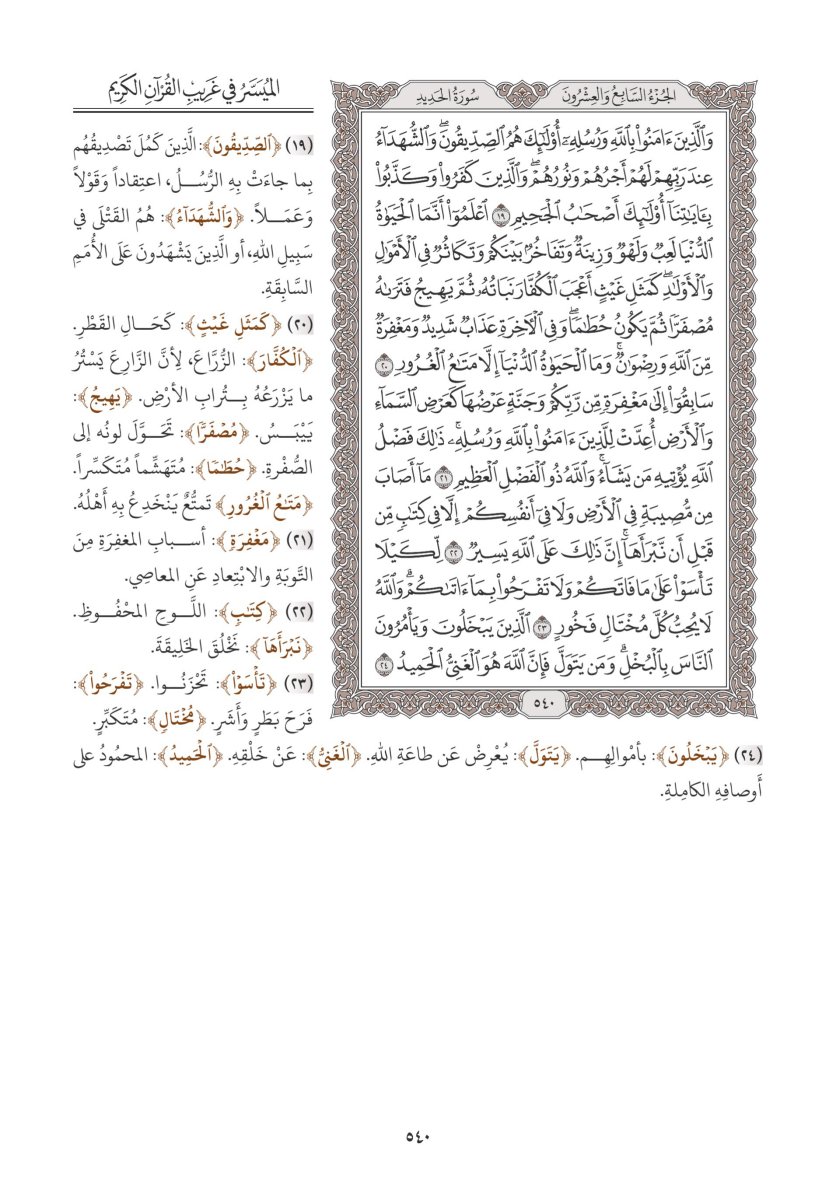 الجُزْءُ السَّابِعُ وَالعِشْرُونَ
سُورَةُ الحَدِيدِ
وَٱلَّذِينَ ءَامَنُوا۟ بِٱللَّهِ وَرُسُلِهِۦٓ أُو۟لَٰٓئِكَ هُمُ ٱلصِّدِّيقُونَۖ وَٱلشُّهَدَآءُ
عِندَ رَبِّهِمْ لَهُمْ أَجْرُهُمْ وَنُورُهُمْۖ وَٱلَّذِينَ كَفَرُوا۟ وَكَذَّبُوا۟
بِـَٔايَٰتِنَآ أُو۟لَٰٓئِكَ أَصْحَٰبُ ٱلْجَحِيمِ ١٩ ٱعْلَمُوٓا۟ أَنَّمَا ٱلْحَيَوٰةُ
ٱلدُّنْيَا لَعِبٌ وَلَهْوٌ وَزِينَةٌ وَتَفَاخُرٌۢ بَيْنَكُمْ وَتَكَاثُرٌ فِى ٱلْأَمْوَٰلِ
وَٱلْأَوْلَٰدِۖ كَمَثَلِ غَيْثٍ أَعْجَبَ ٱلْكُفَّارَ نَبَاتُهُۥ ثُمَّ يَهِيجُ فَتَرَىٰهُ
مُصْفَرًّا ثُمَّ يَكُونُ حُطَٰمًاۖ وَفِى ٱلْءَاخِرَةِ عَذَابٌ شَدِيدٌ وَمَغْفِرَةٌ
مِّنَ ٱللَّهِ وَرِضْوَٰنٌۚ وَمَا ٱلْحَيَوٰةُ ٱلدُّنْيَآ إِلَّا مَتَٰعُ ٱلْغُرُورِ ٢٠
سَابِقُوٓا۟ إِلَىٰ مَغْفِرَةٍ مِّن رَّبِّكُمْ وَجَنَّةٍ عَرْضُهَا كَعَرْضِ ٱلسَّمَآءِ
وَٱلْأَرْضِ أُعِدَّتْ لِلَّذِينَ ءَامَنُوا۟ بِٱللَّهِ وَرُسُلِهِۦۚ ذَٰلِكَ فَضْلُ
ٱللَّهِ يُؤْتِيهِ مَن يَشَآءُۚ وَٱللَّهُ ذُو ٱلْفَضْلِ ٱلْعَظِيمِ ٢١ مَآ أَصَابَ
مِن مُّصِيبَةٍ فِى ٱلْأَرْضِ وَلَا فِىٓ أَنفُسِكُمْ إِلَّا فِى كِتَٰبٍ مِّن
قَبْلِ أَن نَّبْرَأَهَآۚ إِنَّ ذَٰلِكَ عَلَى ٱللَّهِ يَسِيرٌ ٢٢ لِّكَيْلَا
تَأْسَوْا۟ عَلَىٰ مَا فَاتَكُمْ وَلَا تَفْرَحُوا۟ بِمَآ ءَاتَىٰكُمْۗ وَٱللَّهُ
لَا يُحِبُّ كُلَّ مُخْتَالٍ فَخُورٍ ٢٣ ٱلَّذِينَ يَبْخَلُونَ وَيَأْمُرُونَ
ٱلنَّاسَ بِٱلْبُخْلِۗ وَمَن يَتَوَلَّ فَإِنَّ ٱللَّهَ هُوَ ٱلْغَنِىُّ ٱلْحَمِيدُ ٢٤
٥٤٠
المُيَسَّرُ في غَرِيبِ القُرْآنِ الكَرِيمِ
(١٩) ﴿ٱلصِّدِّيقُونَ﴾: الَّذِينَ كَمُلَ تَصْدِيقُهُم
بِما جاءَتْ بِهِ الرُّسُلُ، اعتِقاداً وَقَوْلاً
وَعَمَلاً. ﴿وَٱلشُّهَدَآءُ﴾: هُمُ القَتْلَى في
سَبِيلِ اللهِ، أو الَّذِينَ يَشْهَدُونَ عَلَى الأُمَمِ
السَّابِقَةِ.
(٢٠) ﴿كَمَثَلِ غَيْثٍ﴾: كَحَالِ القَطْرِ.
﴿ٱلْكُفَّارَ﴾: الزُّرَّاعَ، لِأنَّ الزَّارِعَ يَسْتُرُ
ما يَزْرَعُهُ بِتُرابِ الأرْضِ. ﴿يَهِيجُ﴾:
يَيْبَسُ. ﴿مُصْفَرًّا﴾: تَحَوَّلَ لونُه إلى
الصُّفْرةِ. ﴿حُطَٰمًا﴾: مُتَهَشِّماً مُتَكَسِّراً.
﴿مَتَٰعُ ٱلْغُرُورِ﴾ تَمتُّعٌ يَنْخَدِعُ بِهِ أَهْلُهُ.
(٢١) ﴿مَغْفِرَةٍ﴾: أسبابِ المغفِرَةِ مِنَ
التَّوبَةِ والابْتِعادِ عَنِ المعاصِي.
(٢٢) ﴿كِتَٰبٍ﴾: اللَّوحِ المحْفُوظِ.
﴿نَبْرَأَهَآ﴾: نَخْلُقَ الخَلِيقَةَ.
(٢٣) ﴿تَأْسَوْا۟﴾: تَحْزَنُوا. ﴿تَفْرَحُوا۟﴾:
فَرَحَ بَطَرٍ وَأَشَرٍ. ﴿مُخْتَالٍ﴾: مُتَكَبِّرٍ.
(٢٤) ﴿يَبْخَلُونَ﴾: بأمْوالِهِم. ﴿يَتَوَلَّ﴾: يُعْرِضْ عَن طاعَةِ اللهِ. ﴿ٱلْغَنِىُّ﴾: عَنْ خَلْقِهِ. ﴿ٱلْحَمِيدُ﴾: المحمُودُ على
أَوصافِهِ الكامِلةِ.
٥٤٠